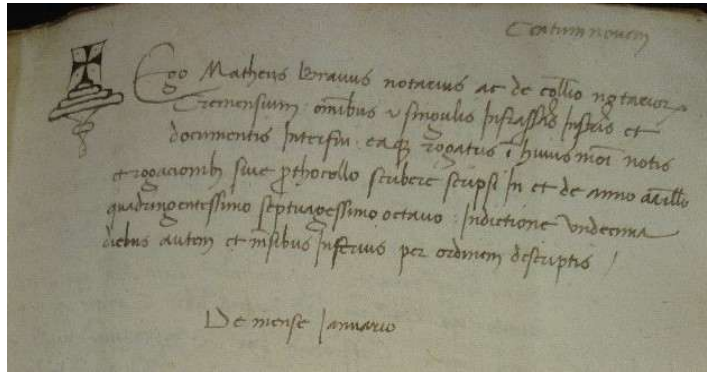 Centumnovem
Ego Matheus bravus notarius ac de coll̄io notarior
Cremensium omībus & singulis Infrassc̄is Instr̄is et
documentis Interfui eaq̨ rogatus ī huius mōi notis
et rogacionib3 sive prothocollo scribere scripsi In et de anno
quadringentessimo septuagessimo octavo Indictione undecima
diebus autem et mēsibus Inferius per ordinem descriptis /
De mense Ianuario